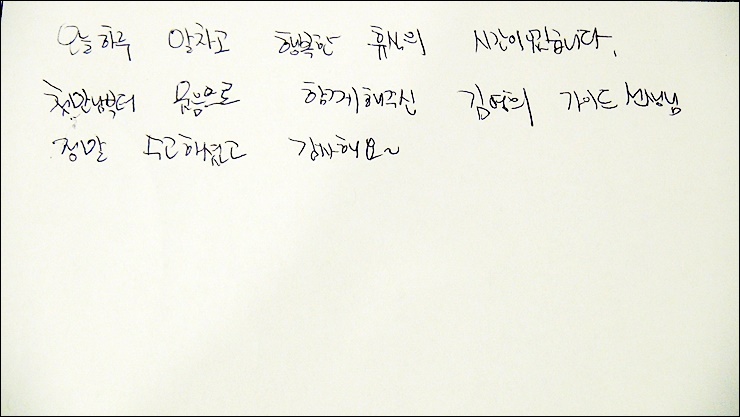 오늘하루 알차고 행복한 휴식의 시간이었습니다.
첫만남부터 웃음으로 함께해주신 김여의 가이드 선생님
정말 수고하셨고 감사해요~